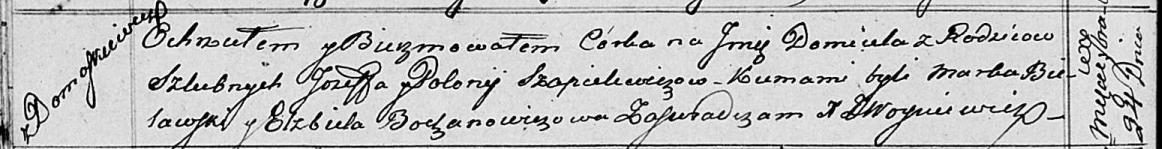 z Domaszkiewicz
Ochrzciłem y Bierzmowałem Córka na Jmię Domicela z Rodzicow
Szlubnych Jozeffa y Polonij Szapielewiczow Kumami byli Marka Bie-
lawski y Elzbieta Bochanowiczowa Zaswiadczam X
24 Dnia